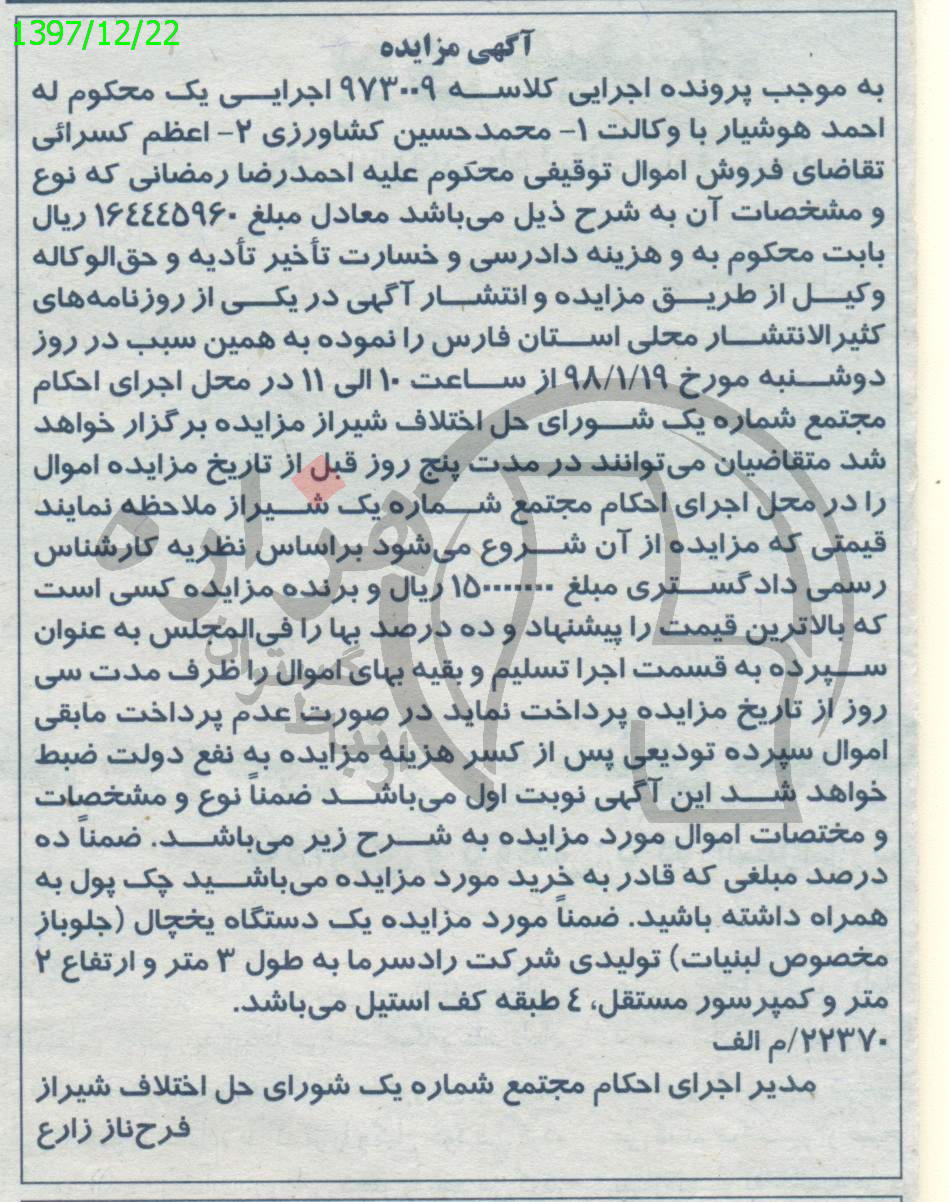 1397/12/22
آگهی مزایده
به موجب پرونده اجرایی کلاسه ۹۷۳۰۰۹ اجرایی یک محکوم له
احمد هوشیار با وکالت ۱- محمدحسین کشاورزی ۲- اعظم کسرائی
تقاضای فروش اموال توقیفی محکوم علیه احمدرضا رمضانی که نوع
و مشخصات آن به شرح ذیل می‌باشد معادل مبلغ ۱۶٤٤٤۵۹۶۰ ریال
بابت محکوم به و هزینه دادرسی و خسارت تأخیر تأدیه و حق‌الوکاله
وکیل از طریق مزایده و انتشار آگهی در یکی از روزنامه‌های
کثیرالانتشار محلی استان فارس را نموده به همین سبب در روز
دوشنبه مورخ ۹۸/۱/۱۹ از ساعت ۱۰ الی ۱۱ در محل اجرای احکام
مجتمع شماره یک شورای حل اختلاف شیراز مزایده برگزار خواهد
شد متقاضیان می‌توانند در مدت پنج روز قبل از تاریخ مزایده اموال
را در محل اجرای احکام مجتمع شماره یک شیراز ملاحظه نمایند
قیمتی که مزایده از آن شروع می‌شود براساس نظریه کارشناس
رسمی دادگستری مبلغ ۱۵۰۰۰۰۰۰۰ ریال و برنده مزایده کسی است
که بالاترین قیمت را پیشنهاد و ده درصد بها را فی‌المجلس به عنوان
سپرده به قسمت اجرا تسلیم و بقیه بهای اموال را ظرف مدت سی
روز از تاریخ مزایده پرداخت نماید در صورت عدم پرداخت مابقی
اموال سپرده تودیعی پس از کسر هزینه مزایده به نفع دولت ضبط
خواهد شد این آگهی نوبت اول می‌باشد ضمناً نوع و مشخصات
و مختصات اموال مورد مزایده به شرح زیر می‌باشد. ضمناً ده
درصد مبلغی که قادر به خرید مورد مزایده می‌باشید چک پول به
همراه داشته باشید. ضمناً مورد مزایده یک دستگاه یخچال (جلوباز
مخصوص لبنیات) تولیدی شرکت رادسرما به طول ۳ متر و ارتفاع ۲
متر و کمپرسور مستقل، ٤ طبقه کف استیل می‌باشد.
۲۲۳۷۰/م الف
مدیر اجرای احکام مجتمع شماره یک شورای حل اختلاف شیراز
فرح‌ناز زارع